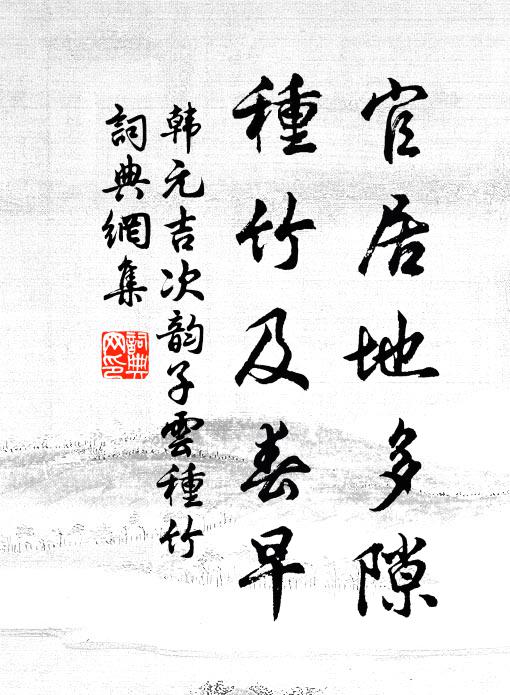 官居地多隙
種竹及春早
韩元吉次韵子雲種竹
詞典網集
詞典
网印